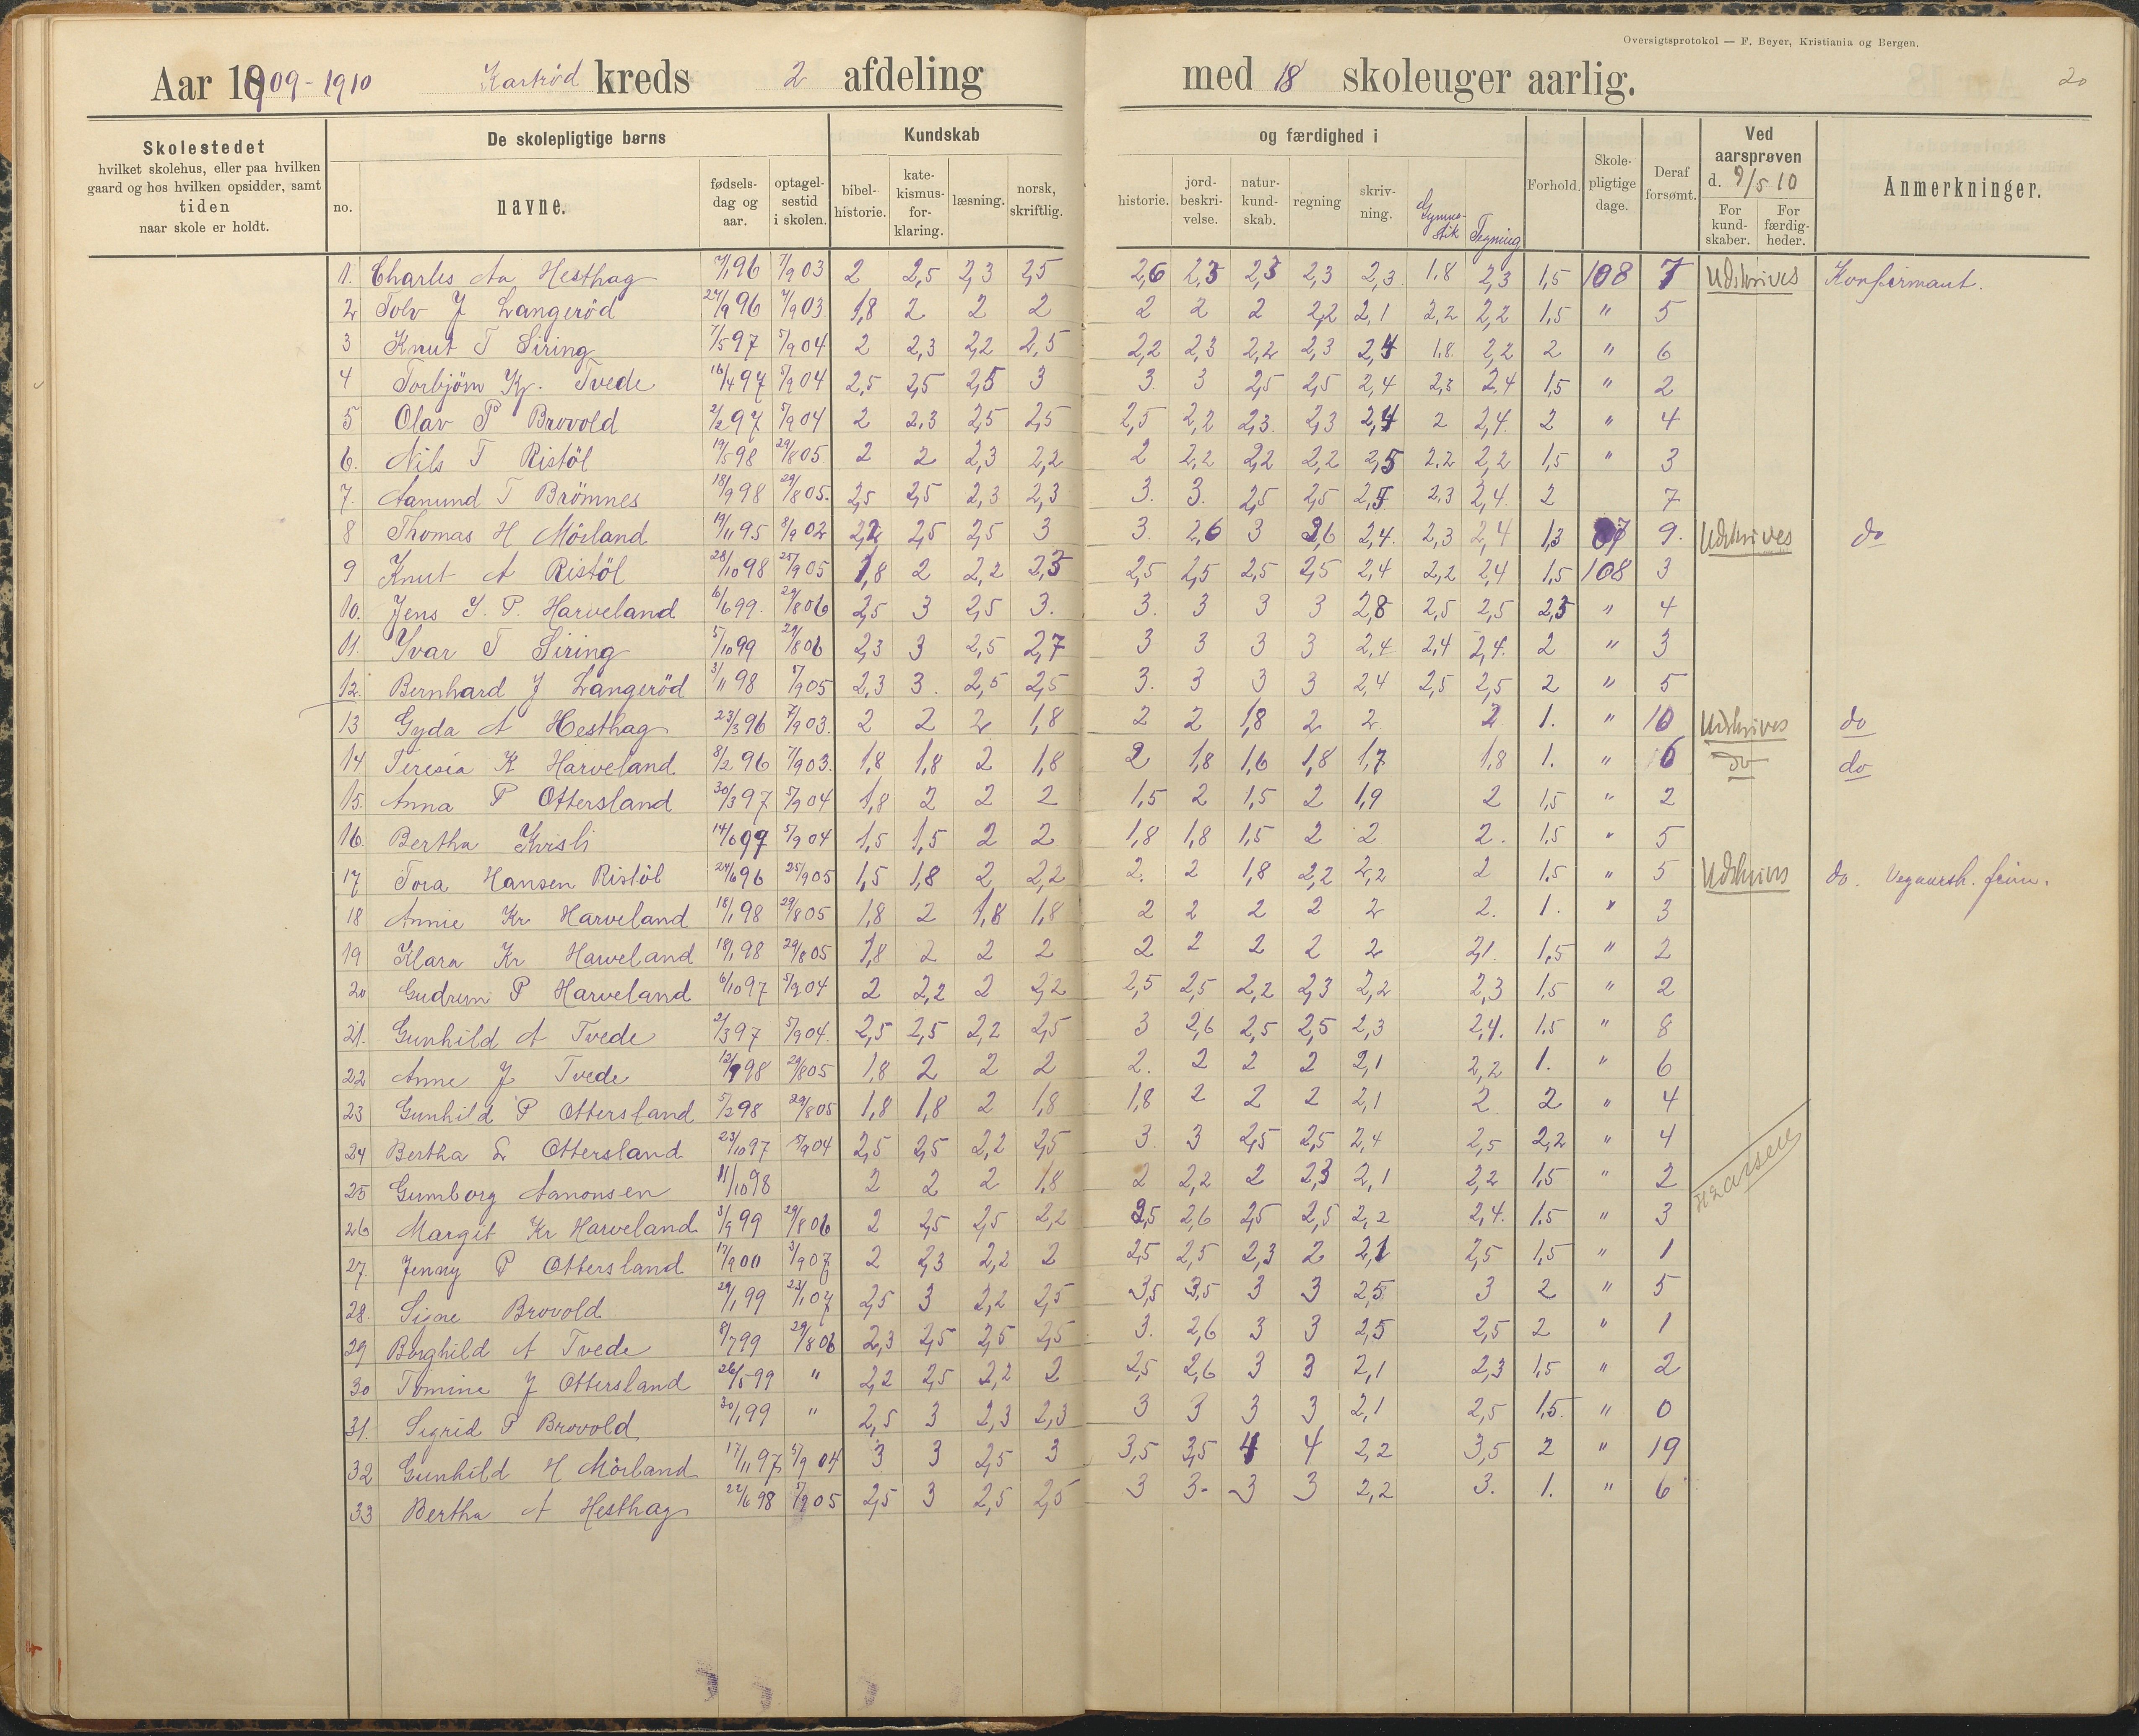 Oversigtsprotokol — F. Beyer, Kristiania og Bergen.
20
Aar 1909-1910 Kartrød kreds 2 afdeling med 18 skoleuger aarlig.
Skolestedet
hvilket skolehus, eller paa hvilken
gaard og hos hvilken opsidder, samt
tiden
naar skole er holdt.
De skolepligtige børns
no. navne. fødsels-dag og aar. optagel-sestid i skolen.
Kundskab og færdighed i
bibel-historie. kate-kismus-for-klaring. læsning. norsk, skriftlig. historie. jord-beskri-velse. natur-kund-skab. regning skriv-ning. Gymna-stik Tegning
Forhold. Skole-pligtige dage. Deraf forsømt. Ved aarsprøven d. 9/5 10 For kund-skaber. For færdig-heder. Anmerkninger.
1. Charles Aa Hesthag 7/1 96 7/9 03 2 2,5 2,3 2,5 2,6 2,3 2,3 2,3 2,3 1,8 2,3 1,5 108 7 Udskrives Konfirmant.
2 Tolv J Langeröd 24/9 96 7/9 03 1,8 2 2 2 2 2 2 2,2 2,1 2,2 2,2 1,5 " 5
3 Knut T Siring 7/5 97 5/9 04 2 2,3 2,2 2,5 2,2 2,3 2,2 2,3 2,4 1,8 2,2 2 " 6
4 Torbjörn Kr. Tvede 16/4 97 5/9 04 2,5 2,5 2,5 3 3. 3 2,5 2,5 2,4 2,3 2,4 1,5 " 2
5 Olav P Brovold 2/2 97 5/9 04 2 2,3 2,5 2,5 2,5 2,2 2,3. 2,3 2,4 2 2,4. 2 " 4
6. Nils T Ristöl 19/5 98 29/8 05 2 2 2,3 2,2 2 2,2 2,2 2,2 2,5 2,2 2,2 1,5 " 3
7. Aanund T Brömnes 18/9 98 29/8 05. 2,5 2,5 2,3 2,3 3. 3. 2,5 2,5 2,5 2,3 2,4. 2 7
8 Thomas H Mörland 19/11 95 8/9 02 2,2 2,5 2,5 3 3. 2,6 3 2,6 2,4. 2,3 2,4 1,3 9. Udskrives do
9 Knut A Ristöl 28/10 98 25/9 05 1,8 2 2,2 2,3 2,5 2,5 2,5 2,5 2,4 2,2 2,4 1,5 108 3
10. Jens S. P. Harveland 6/6 99. 29/8 06 2,5 3 2,5 3. 3. 3 3 3 2,8 2,5 2,5 2,3 " 4
11. Yvar T Siring 5/10 99 29/8 06 2,3 3 2,5 2,7 3 3 3 3 2,4 2,4 2,4. 2 " 3
12. Bernhard J Langeröd 3/11 98 5/9 05 2,3 3. 2,5 2,5 3. 3 3 3 2,4 2,5 2,5 2 " 5
13 Gyda A Hesthag 23/3 96 7/9 03. 2 2 2 1,8 2 2 1,8 2 2 2 1. " 10 Udskrives do
14 Teresia K Harveland 8/2 96 7/9 03. 1,8 1,8 2 1,8 2 1,8 1,6 1,8 1,7 1,8 1. " 6 do do
15. Anna P Ottersland 30/3 97 5/9 04 1,8 2 2 2 1,5 2 1,5 2 1,9 2 1,5 " 2
16. Bertha Kvisli 14/6 97 5/9 04 1,5 1,5 2 2 1,8 1,8 1,5 2 2 2. 1,5 " 5
17 Tora Hansen Ristöl 24/6 96 25/9 05 1,5 1,8 2 2,2 2. 2 1,8 2,2 2,2 2 1,5 " 5 Udskrives do.
18 Annie Kr Harveland 18/1 98 29/8 05 1,8 2 1,8 1,8 2 2 2 2 2 2. 1. " 3
19 Klara Kr Harveland 18/1 98 29/8 05 1,8 2 2 2 2 2 2 2 2 2,1. 1,5 " 2
20 Gudrun P Harveland 6/10 97 5/9 04 2 2,2 2 2,2 2,5 2,5 2,2 2,3 2,2 2,3 1,5 " 2
21. Gunhild A Tvede 2/3 97 5/9 04. 2,5 2,5 2,2 2,5 3 2,6 2,5 2,5 2,3 2,4. 1.5 " 8
22 Anne J Tvede 12/9 98 29/8 05 1,8 2 2 2 2. 2 2 2 2,1 2,2 1. " 6
23 Gunhild P Ottersland 5/2 98 29/8 05 1,8 1,8 2 1,8 1,8 2 2 2 2,1 2 2 " 4
24 Bertha L Ottersland 23/10 97 5/9 04 2,5 2,5 2,2 2,5 3. 3 2,5 2,5 2,4 2,5 2,2 " 4
25 Gumborg Aanonsen 11/10 98 2 2 2 1,8 2 2,2 2 2,3 2,1 2,2 1,5 " 2
26 Margit Kr Harveland 3/9 99 29/8 06 2 2,5 2,5 2,2 2,5 2,6 2,5 2,5 2,2 2,4. 1.5 " 3
27. Jenny P Ottersland 17/9 00 3/9 07 2 2,3 2,2 2 2,5 2,5 2,3 2 2,1 2,5 1,5 " 1
28. Signe Brovold 29/1 99 23/1 07 2,5 3 2,2 2,5 3,5 3,5 3 3 2,5 3 2 " 5
29 Borghild A Tvede 8/7 99 29/8 06 2,3 2,5 2,5 2,5 3. 2,6 3 3 2,5 2,5 2 " 1
30 Tomine J Ottersland 26/5 99 " 2,2 2,5 2,2 2 2,5 2,6 3 3 2,1 2,3 1,5 " 2
31. Sigrid P Brovold 30/1 99 " 2,5 3 2,3 2,3 3 3 3 3 2,1 2,5 1,5. " 0
32 Gunhild H Mörland 17/11 97 5/9 04 3 3 2,5 3 3,5 3,5 4 4 2,2 3,5 2 " 19
33 Bertha A Hesthag 22/6 98 5/9 05 2,5 3 2,5 2,5 3 3- 3 3 2,2 3. 1. " 6